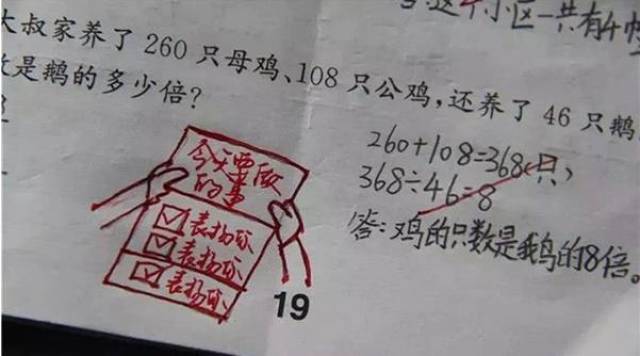 这个小区一共有4
大叔家养了 260 只母鸡、108 只公鸡，还养了 46 只鹅
是鹅的多少倍？
260+108=368(只)
368÷46=8
答:鸡的只数是鹅的8倍。
今天要做
的事
表扬你
表扬你
表扬你
19